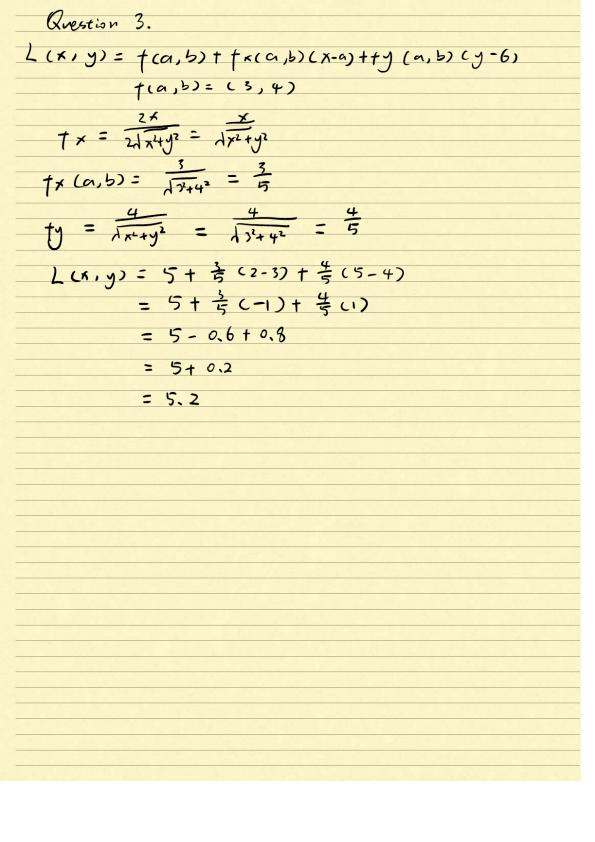 Question 3.
L(x, y) = f(a, b) + fx(a, b)(x-a) + fy (a, b) (y-b)
f(a, b) = (3, 4)
fx = 2x/2√x²+y² = x/√x²+y²
fx (a, b) = 3/√3²+4² = 3/5
fy = 4/√x²+y² = 4/√3²+4² = 4/5
L(x, y) = 5 + 3/5 (2-3) + 4/5 (5-4)
= 5 + 3/5 (-1) + 4/5 (1)
= 5 - 0.6 + 0.8
= 5 + 0.2
= 5.2